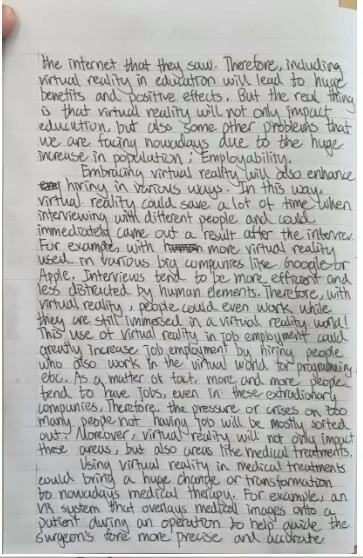 the internet that they saw. Therefore, including
virtual reality in education will lead to huge
benefits and positive effects. But the real thing
is that virtual reality will not only impact
education, but also some other problems that
we are facing nowadays due to the huge
increase in population; Employability.
Embracing virtual reality will also enhance
hiring in various ways. In this way
virtual reality could save a lot of time when
interviewing with different people and could
immediately came out a result after the interview.
For example, with more virtual reality
used in various big companies like Google or
Apple. Interviews tend to be more efficient and
less distracted by human elements. Therefore, with
virtual reality, people could even work while
they are still immersed in a virtual reality world!
This use of virtual reality in job employment could
greatly increase job employment by hiring people
who also work in the virtual world for programming
etc. As a matter of fact, more and more people
tend to have jobs, even in these extradionary
companies. Therefore, the pressure or crises on too
many people not having job will be mostly sorted
out. Moreover, virtual reality will not only impact
these areas, but also areas like medical treatments.
Using virtual reality in medical treatments
could bring a huge change or transformation
to nowadays medical therapy. For example, an
VR system that overlays medical images onto a
patient during an operation to help guide the
surgeon's more precise and accurate